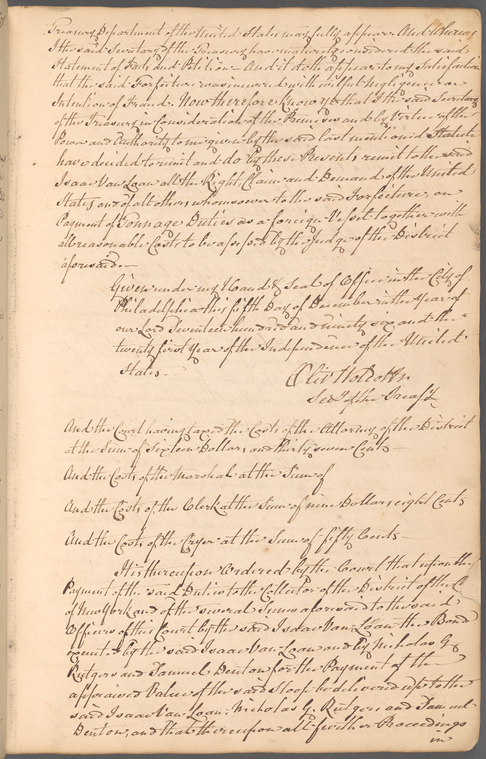 Treasury Department of the United States may fully appear And Whereas
I the said Secretary of the Treasury have maturely considered the said
Statement of Facts and Petition And it doth appear to my Satisfaction
that the said Forfeiture was incurred without wilful negligence or
Intention of Fraud. Now therefore know ye that I the said Secretary
of the Treasury in Consideration of the Premises and by Virtue of the
Power and Authority to me given by the said last mentioned Statute
have decided to remit and do by these Presents remit to the said
Isaac Van Loan all the Right Claim and Demand of the United
States and of all others whomsoever to the said Forfeiture, on
Payment of Tonnage Duties as a foreign Vessel together with
all reasonable Costs to be assessed by the Judge of the District
aforesaid.—
Given under my Hand & Seal of Office in the City of
Philadelphia this fifth Day of December in the Year of
our Lord Seventeen hundred and ninety six and the
twenty first Year of the Independence of the United
States.—
Oliv Wolcott
Secy of the Treasy
And the Court having taxed the Costs of the Attorney of the District
at the Sum of Sixteen Dollars and thirty seven Cents
And the Costs of the Marshal at the Sum of
And the Costs of the Clerk at the Sum of nine Dollars eight Cents
And the Costs of the Cryer at the Sum of fifty Cents—
It is thereupon Ordered by the Court that upon the
Payment of the said Duties to the Collector of the District of the C
of New York and of the several Sums aforesaid to the said
Officers of this Court by the said Isaac Van Loan the Bond
executed by the said Isaac Van Loan and by Nicholas G
Rutgers and Samuel Denton for the Payment of the
appraised Value of the said Sloop be delivered up to the
said Isaac Van Loan, Nicholas G. Rutgers and Samuel
Denton, and that thereupon all further Proceedings
in